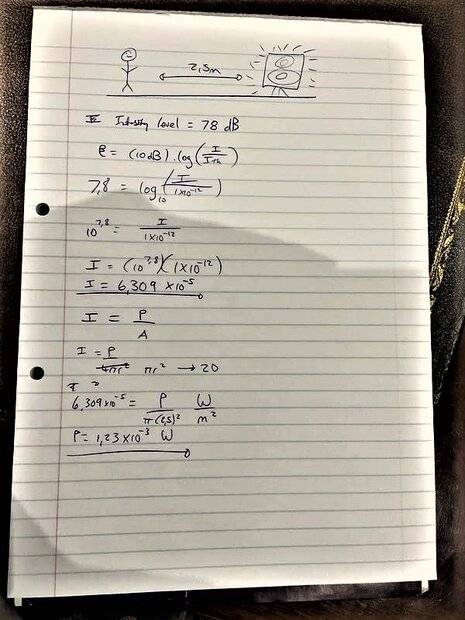 2,5m
Intensity level = 78 dB
β = (10 dB) · log (I / I_th)
7,8 = log₁₀ (I / 1×10⁻¹²)
10^7,8 = I / 1×10⁻¹²
I = (10^7,8)(1×10⁻¹²)
I = 6,309 ×10⁻⁵
I = P / A
I = P / πr² → 2D
6,309×10⁻⁵ = P / π(2,5)² W / m²
P = 1,23×10⁻³ W